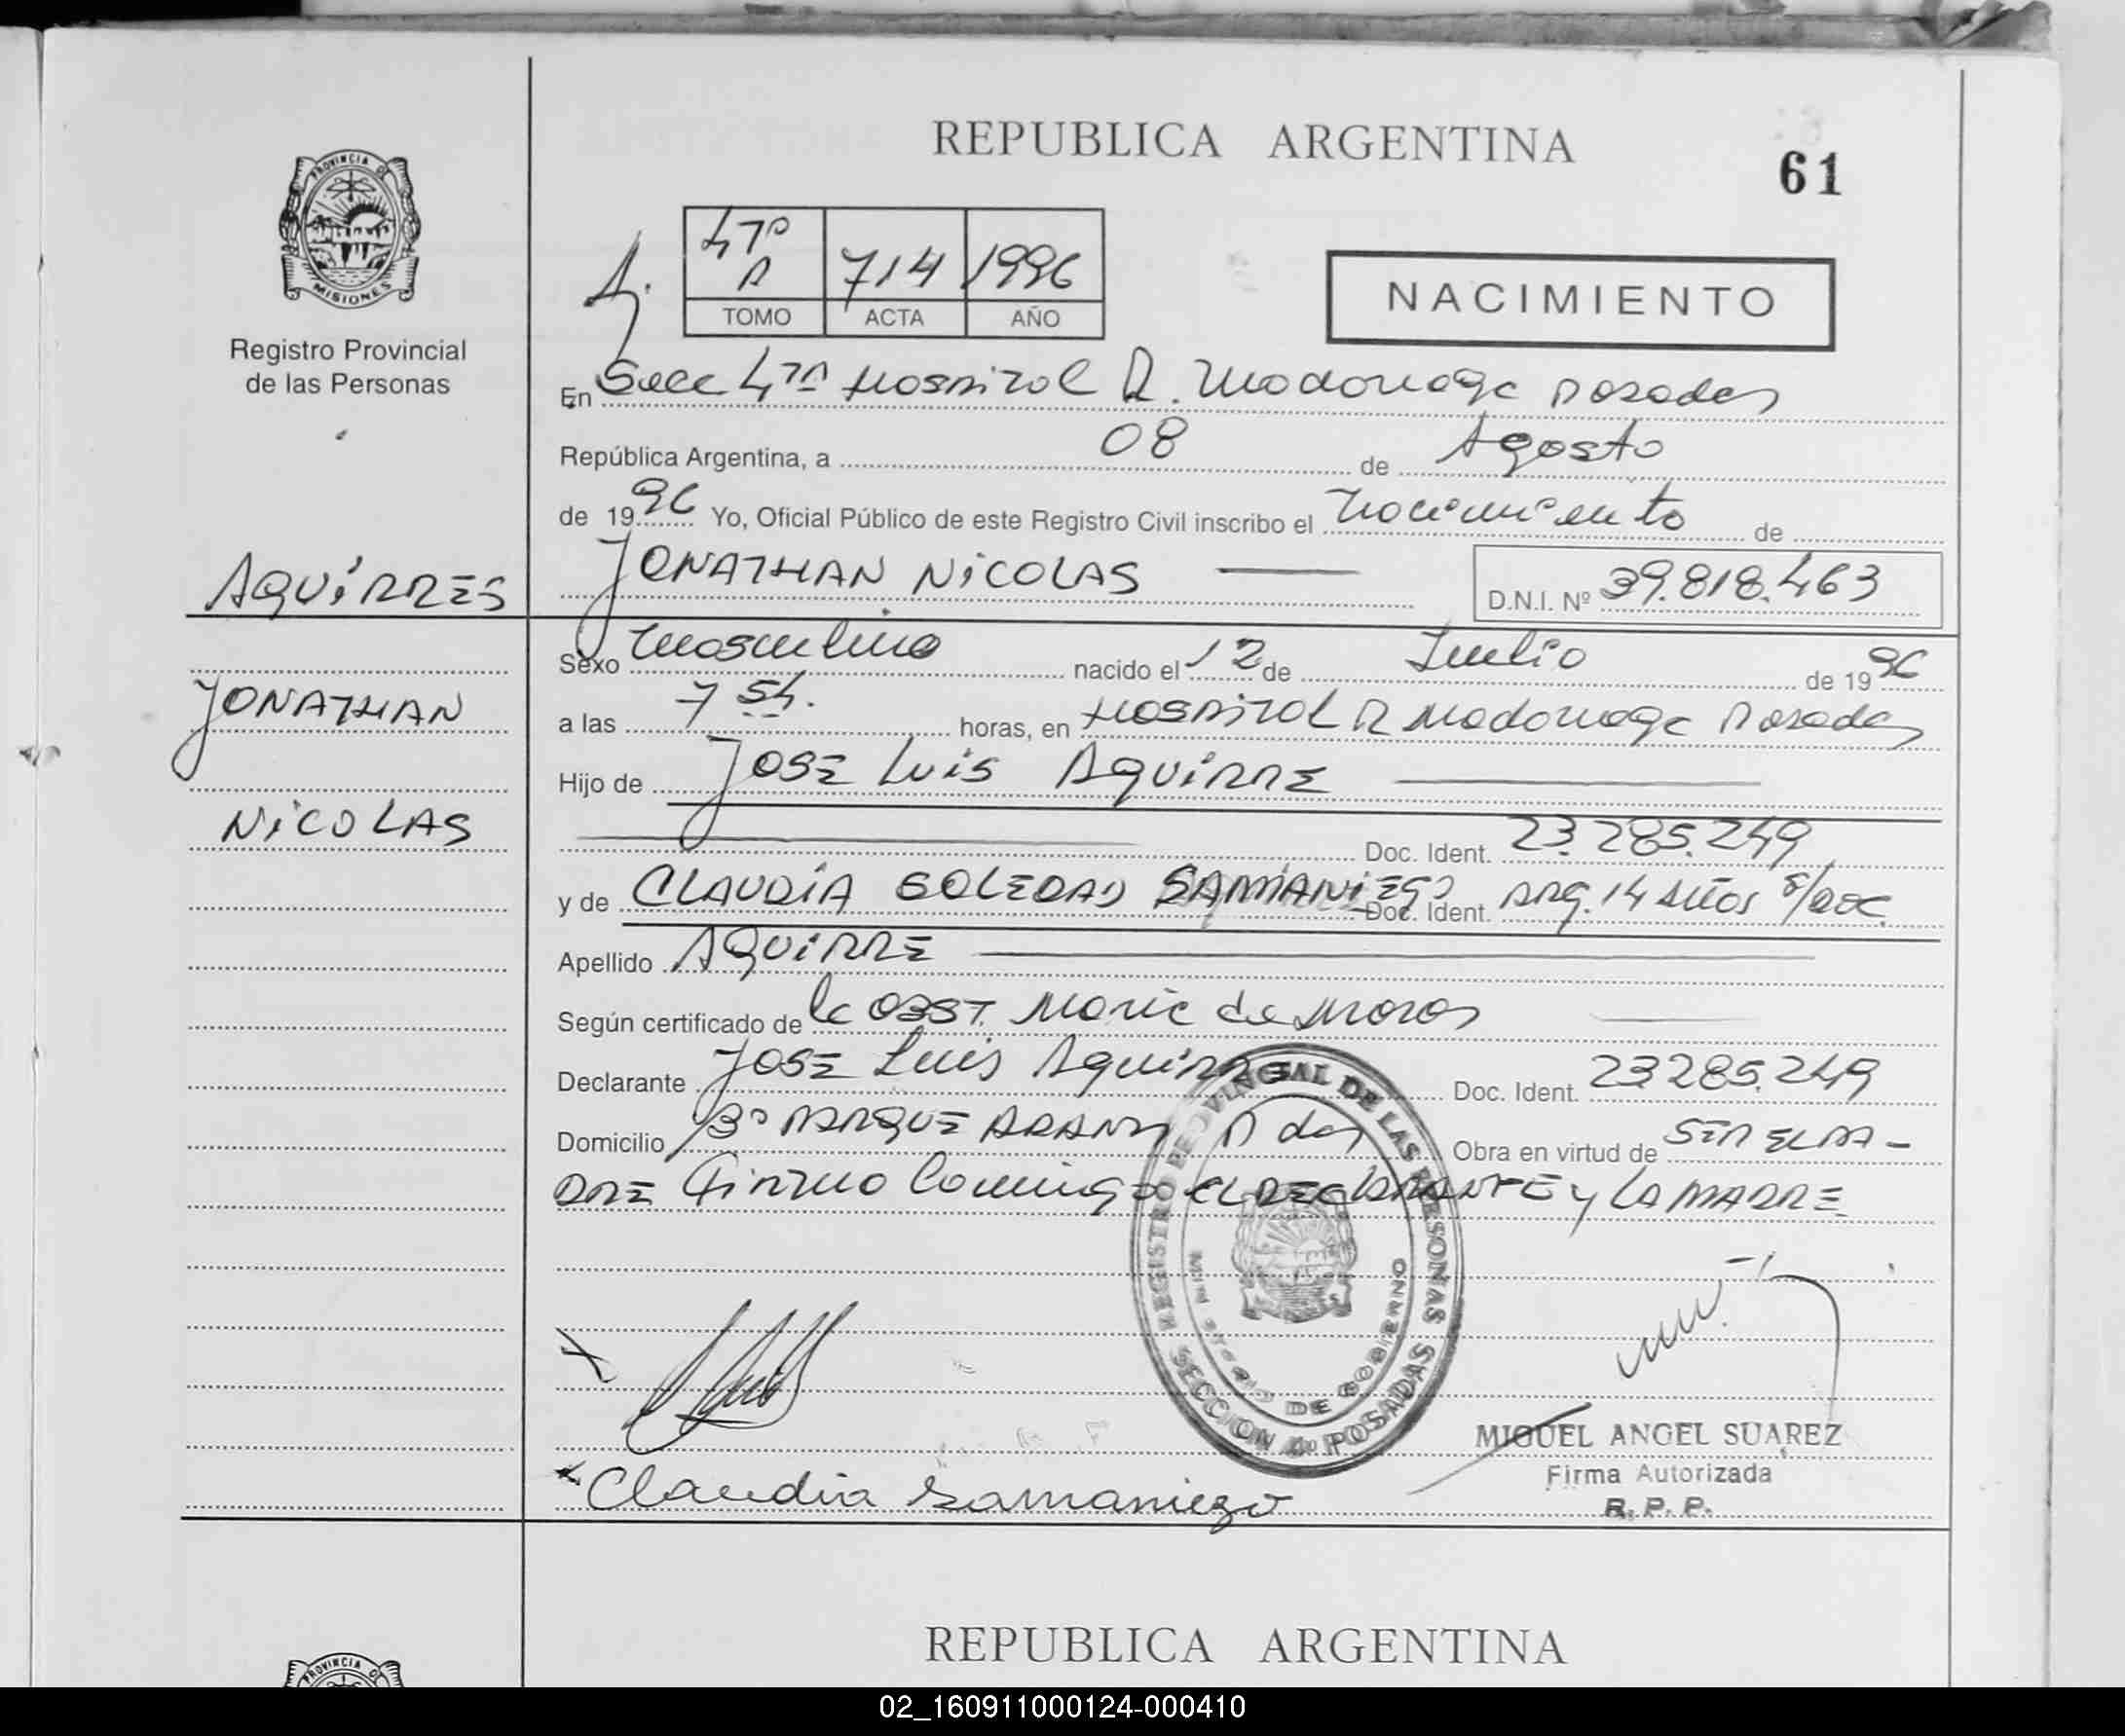 REPUBLICA ARGENTINA
61
PROVINCIA DE
MISIONES
Registro Provincial
de las Personas
47º
A 714 1996
TOMO ACTA AÑO
NACIMIENTO
En Secc 4ta Hospital R. Madariaga Posadas
República Argentina, a 08 de Agosto
de 1996 Yo, Oficial Público de este Registro Civil inscribo el nacimiento de
JONATHAN NICOLAS
D.N.I. Nº 39.818.463
AQUIRRES
JONATHAN
NICOLAS
Sexo Masculino nacido el 12 de Julio de 1996
a las 7 54. horas, en Hospital R Madariaga Posadas
Hijo de JOSE LUIS AGUIRRE
Doc. Ident. 23.285.249
y de CLAUDIA SOLEDAD SAMANIEGO Doc. Ident. ARG. 14 AÑOS S/DOC
Apellido AGUIRRE
Según certificado de la OBST. Maria de
Declarante JOSE Luis Aguirre Doc. Ident. 23285.249
Domicilio Bº PARQUE ADAM Pdas Obra en virtud de SER EL PA-
DRE Firma Conmigo EL DECLARANTE Y LA MADRE
REGISTRO PROVINCIAL DE LAS PERSONAS
MINISTERIO DE GOBIERNO
SECCION 4a POSADAS
MIGUEL ANGEL SUAREZ
Firma Autorizada
R. P. P.
Claudia Samaniego
REPUBLICA ARGENTINA
PROVINCIA DE
02_160911000124-000410